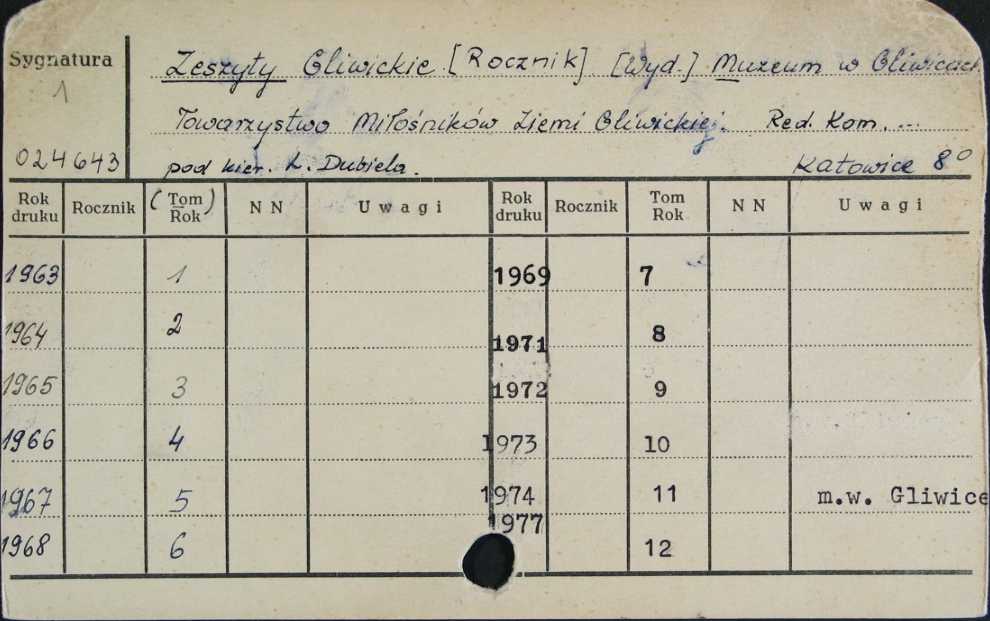 Sygnatura
1
024643
Zeszyty Gliwickie [Rocznik] [Wyd.] Muzeum w Gliwicach
Towarzystwo Miłośników Ziemi Gliwickiej. Red. Kom. ...
pod kier. L. Dubiela. Katowice 8°
Rok druku Rocznik (Tom Rok) NN Uwagi Rok druku Rocznik Tom Rok NN Uwagi
1963 1 1969 7
1964 2 1971 8
1965 3 1972 9
1966 4 1973 10
1967 5 1974 11 m.w. Gliwice
1968 6 1977 12